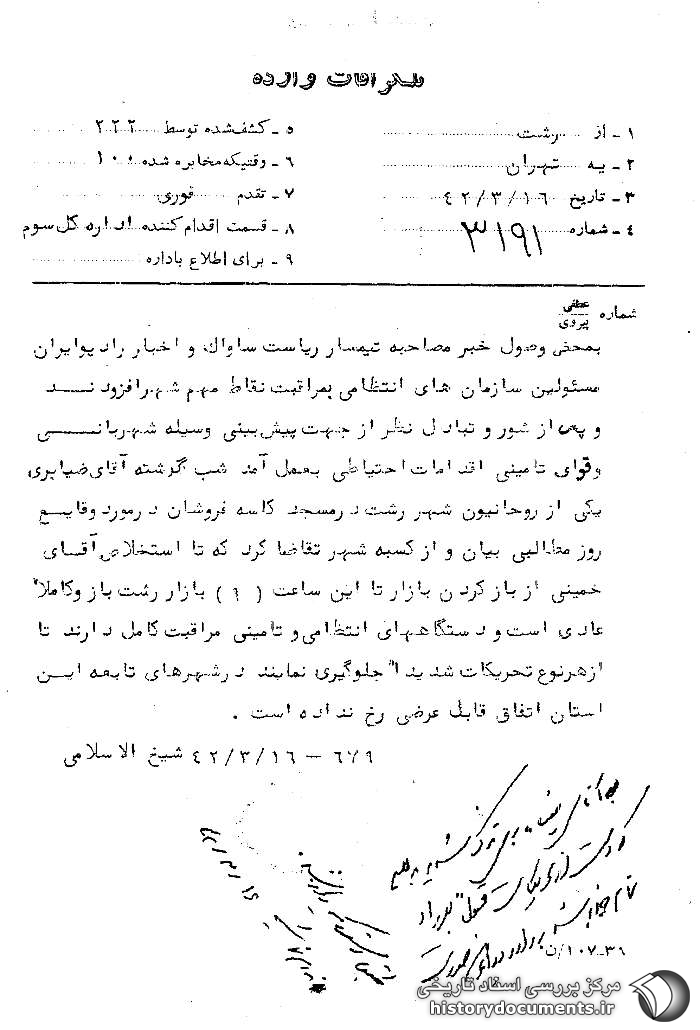 تلگرافات وارده
۱ـ از رشت
۲ـ به تهران
۳ـ تاریخ ۴۲/۳/۱۶
۴ـ شماره ۳۱۹۱
۵ـ کشف‌شده توسط ۲۲۲
۶ـ وقتیکه مخابره شده ۱۰۰
۷ـ تقدم فوری
۸ـ قسمت اقدام‌کننده اداره کل سوم
۹ـ برای اطلاع باداره
شماره عطفی
پیروی
بمحض وصول خبر مصاحبه تیمسار ریاست ساواک و اخبار رادیوایران
مسئولین سازمان های انتظامی بمراقبت نقاط مهم شهرافزودنـــد
و پس از شور و تبادل نظر از جهت پیش‌بینی وسیله شهربانـــی
وقوای تامینی اقدامات احتیاطی بعمل آمد شب گذشته آقای ضیابری
یکی از روحانیون شهر رشت درمسجد کاسه فروشان درمورد وقایـــع
روز مطالبی بیان و از کسبه شهر تقاضا کرد که تا استخلاص آقـــای
خمینی از بازکردن بازار تا این ساعت (۹) بازار رشت باز وکاملاً
عادی است و دستگاههای انتظامی و تامینی مراقبت کامل دارند تا
ازهرنوع تحریکات شدیداً جلوگیری نمایند درشهرهای تابعه ایــن
استان اتفاق قابل عرضی رخ نداده است .
۶۷۹ – ۴۲/۳/۱۶ شیخ الاسلامی
۳۶-۱۰۷/ن
مرکز بررسی اسناد تاریخی
historydocuments.ir